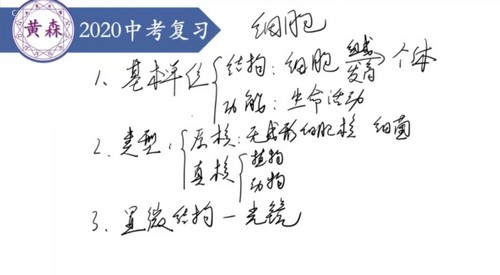 黄森
2020中考复习
细胞
1、基本单位 { 结构：细胞 组成 发育 → 个体
功能：生命活动
2、类型： { 原核：无成形细胞核 细菌
真核 { 植物
动物
3、显微结构 — 光镜